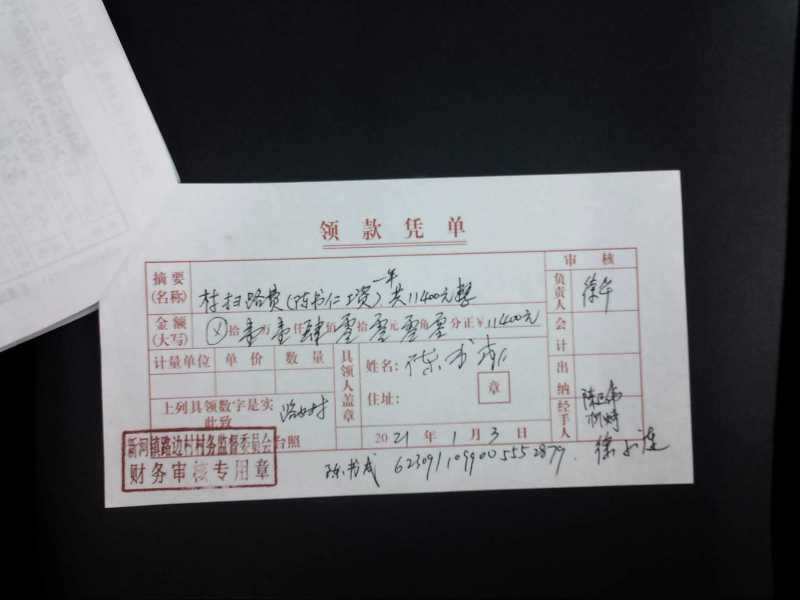 领款凭单
审核
摘要(名称) 村扫路费(陈书仁工资)一年 共11400元整
负责人 徐
金额(大写) ⊗拾壹万壹仟肆佰零拾零元零角零分正¥11400元
会计
计量单位 单价 数量
具领人盖章
姓名: 陈书仁
住址: 章
出纳
上列具领数字是实
此致 路边村
台照
2021年1月3日
经手人
新河镇路边村村务监督委员会
财务审核专用章
陈书成 6230910990055552879
徐